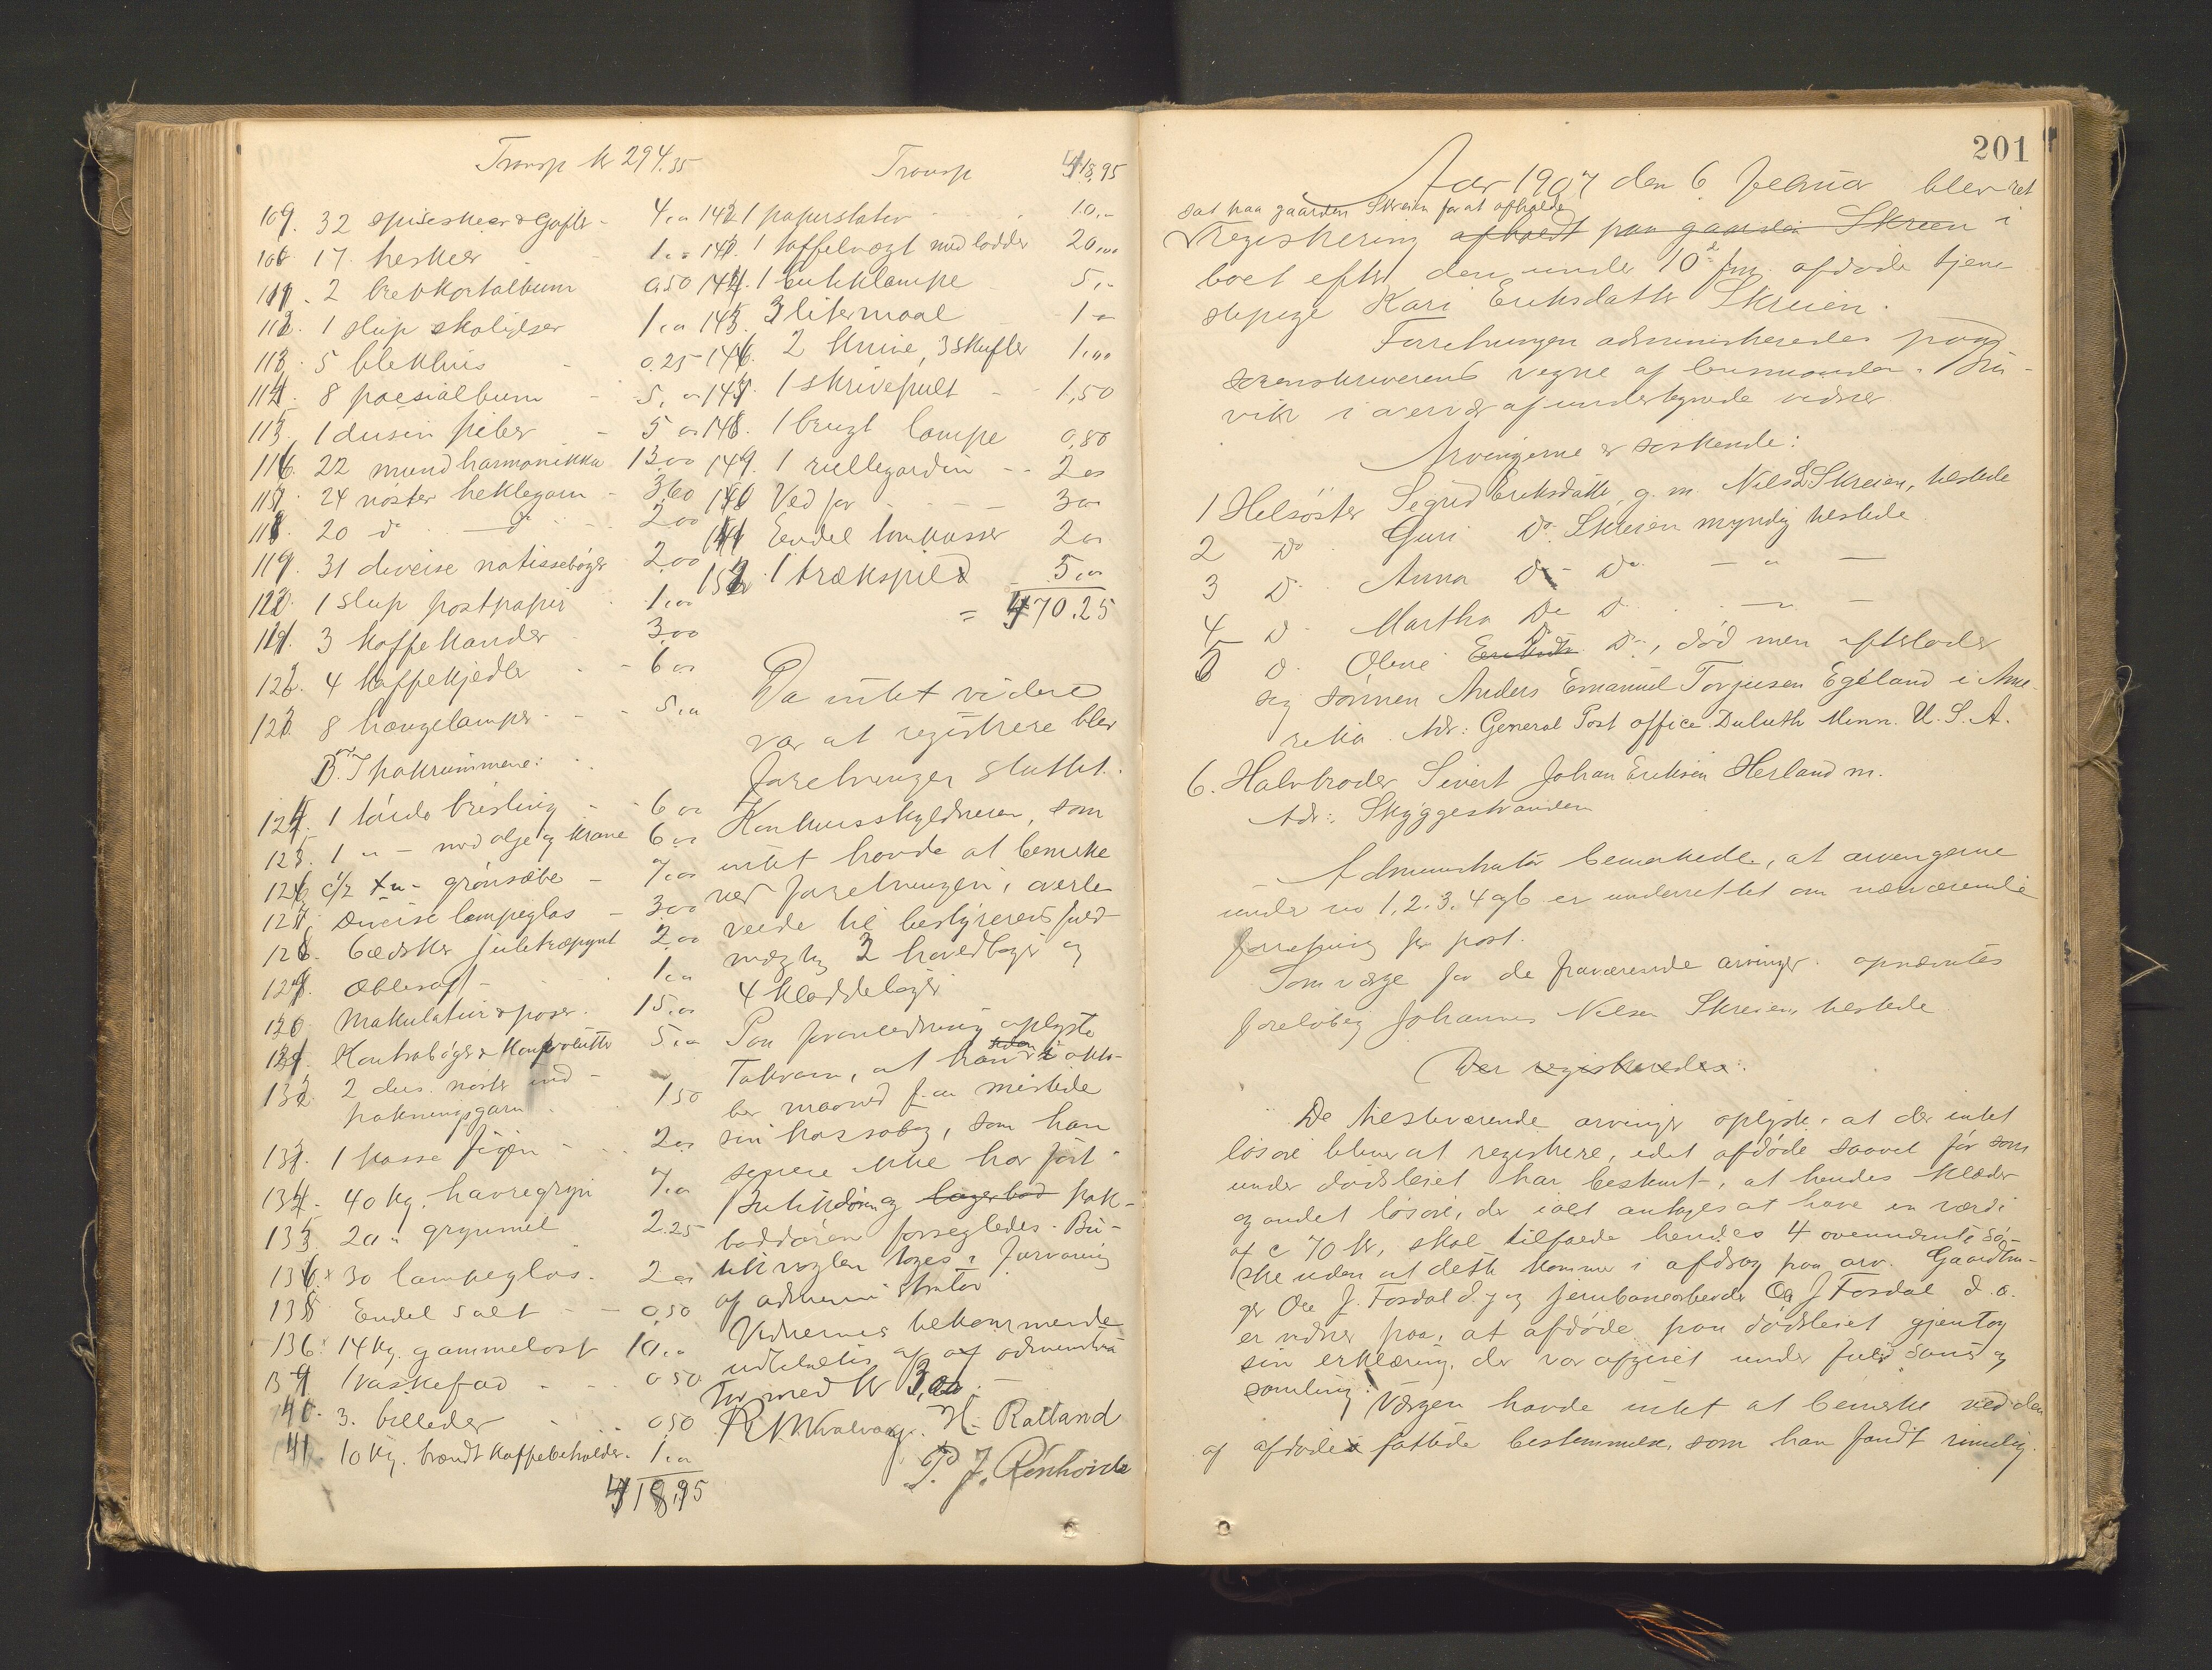 Transp kr 294.35
109. 32 spiseskeer & Gafler - 4,00
110. 17 heskeer - 1,00
111. 2 brevkortalbum 0,50
112. 1 slup skolijser 1,00
113. 5 blekhus - 0.25
114. 8 poesialbum - 5,00
115. 1 dusin piber - 5 00
116. 22 mundharmonikka 13,00
117. 24 nöster heklegarn - 3,60
118. 20 do - 2,00
119. 31 diverse notissebøger 2,00
120. 1 slup postpapir 1,00
121. 3 kaffekander 3,00
122. 4 kaffekjedler - 6 00
123. 8 hængelamper - 5,00
B. I pakrummene:
124. 1 tönde brisling - 6 00
125. 1 - " - med olje og krane 6 00
126. grönsæbe - 7,00
127. Diverse lampeglas - 3,00
128. 6 æsker juletræpynt 2,00
129. Æblesaft - 1,00
130. Makulatur & poser. 15,00
131. Kontrabøger & Konvolutter 5,00
132. 2 dus. nöster ind-
pakningsgarn 1 50
133. 1 kasse figen - 2 00
134. 40 kg. havregryn 7,00
135. 20 " grynmel 2.25
30 lampeglas. 2 00
138 Endel salt - 0,50
14 kg. gammelost 10,00
139 1 vaskefad - 0 50
140. 3. billeder 0,50
141. 10 kg. brændt kaffebeholder. 1,00
418,95
Transp 418,95
142. 1 papirstativ 10,-
143. 1 taffelvægt med lodder 20,00
144. 1 butiklampe 5,-
145. 3 litermaal 1 00
146. 2 knive, 3 skufler 1,00
147. 1 skrivepult - 1,50
148. 1 brugt lampe 0,80
149. 1 rullegardin - - 2 00
150 Ved for - - 3 00
151 Endel tomkasser 2 00
152. 1 trækspild 5,00
= 470.25
Da intet videre
var at registrere blev
forretningen sluttet.
Konkursskyldneren, som
intet havde at bemerke
ved forretningen, overle-
verede til bestyrerens fuld-
mægtig 2 hovedbøger og
4 kladdebøger
Paa foranledning oplyste
Takvam, at han siden i okto-
ber maaned f. aa. mistede
sin kassabog, som han
senere ikke har ført.
Butikdören og lagerbod pak-
boddören forsegledes. Bu-
tiknøglen toges i forvaring
af administrator
Vidnernes tilkommende
udbetaltes af administra-
tor med kr 3,00
R M Kvalvaag. H. Ratland
P. J. Rönhovde
201
Aar 1907 den 6 februar blev ret
sat paa gaarden Skreien for at afholde
registrering afholdt paa gaarden Skreien i
boet efter den under 10de jan. afdøde tjene-
stepige Kari Eriksdatter Skreien.
Forretningen administreredes paa
sorenskriverens vegne af lensmanden. Bru-
vik i overvær af undertegnede vidner.
Arvingerne er søskende:
1 Helsöster Segrid Eriksdatter, g. m. Nils L Skreien, tilstede
2 Do Guri Do Skreien myndig tilstede
3 D Anna Do Do - " -
4 D Martha Do D - " -
5 D Oline Eriksdtr. Do, død men efterlader
sig sönnen Anders Emanuel Torjusen Egeland i Ame-
rika. Adr: General Post office Duluth Minn. U. S. A.
6. Halvbroder Sivert Johan Eriksen Herland m.
Adr: Skyggestranden
Administrator bemerkede, at arvingerne
under no 1, 2, 3, 4 og 6 er underrettet om nærværende
forretning per post.
Som verge for de fraværende arvinger opnævntes
foreløbig Johannes Nilsen Skreien, tilstede
Der registreredes:
De tilstedeværende arvinger oplyste, at der intet
løsøre bliver at registrere, idet afdøde saavel før som
under dødsleiet har bestemt, at hendes klæder
og andet løsøre, der ialt antages at have en værdi
af c 70 kr, skal tilfalde hendes 4 ovennævnte sø-
stre uden at dette kommer i afdrag paa arv. Gaardbru-
ger Ole J. Fosdal d. y og jernbanearbeider Ole J Fosdal d. æ.
er vidner paa, at afdøde paa dødsleiet gjentog
sin erklæring, der var afgivet under fuld sans og
samling. Vergen havde intet at bemerke ved den
af afdøde fattede bestemmelse, som han fandt rimelig.